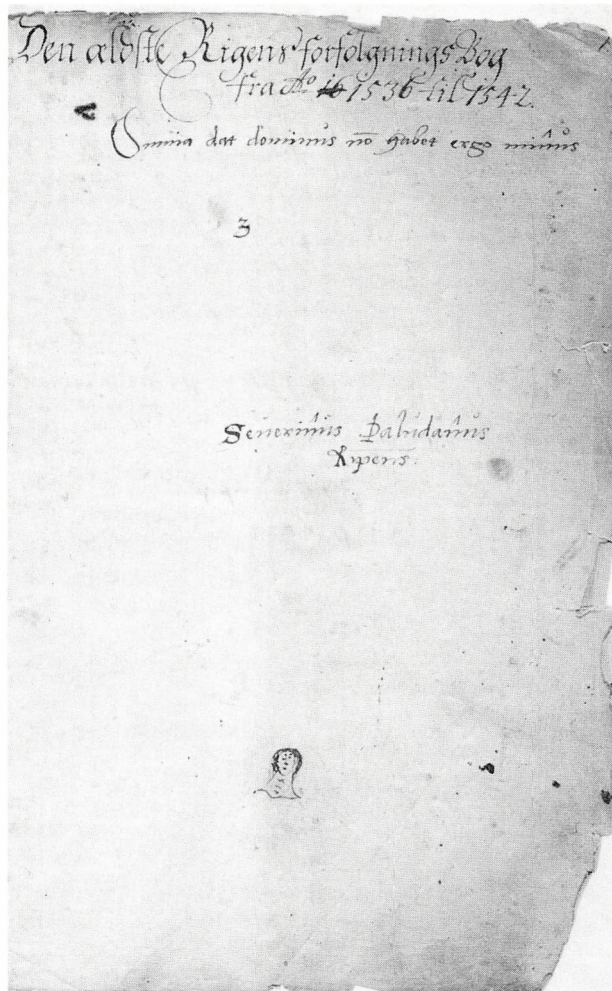 Den ældste Rigens forfølgnings Bog
fra Ao 16 1536 til 1542.
A
Omnia dat dominus nō habet ergo minus
3
Seuerinus Paludanus
Ripens.